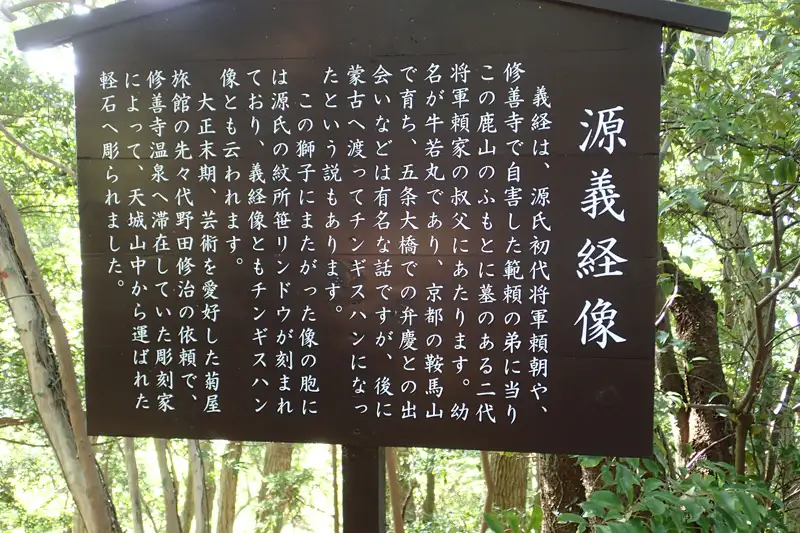 源義経像
義経は、源氏初代将軍頼朝や、
修善寺で自害した範頼の弟に当り
この鹿山のふもとに墓のある二代
将軍頼家の叔父にあたります。幼
名が牛若丸であり、京都の鞍馬山
で育ち、五条大橋での弁慶との出
会いなどは有名な話ですが、後に
蒙古へ渡ってチンギスハンになっ
たという説もあります。
この獅子にまたがった像の胞に
は源氏の紋所笹リンドウが刻まれ
ており、義経像ともチンギスハン
像とも云われます。
大正末期、芸術を愛好した菊屋
旅館の先々代野田修治の依頼で、
修善寺温泉へ滞在していた彫刻家
によって、天城山中から運ばれた
軽石へ彫られました。